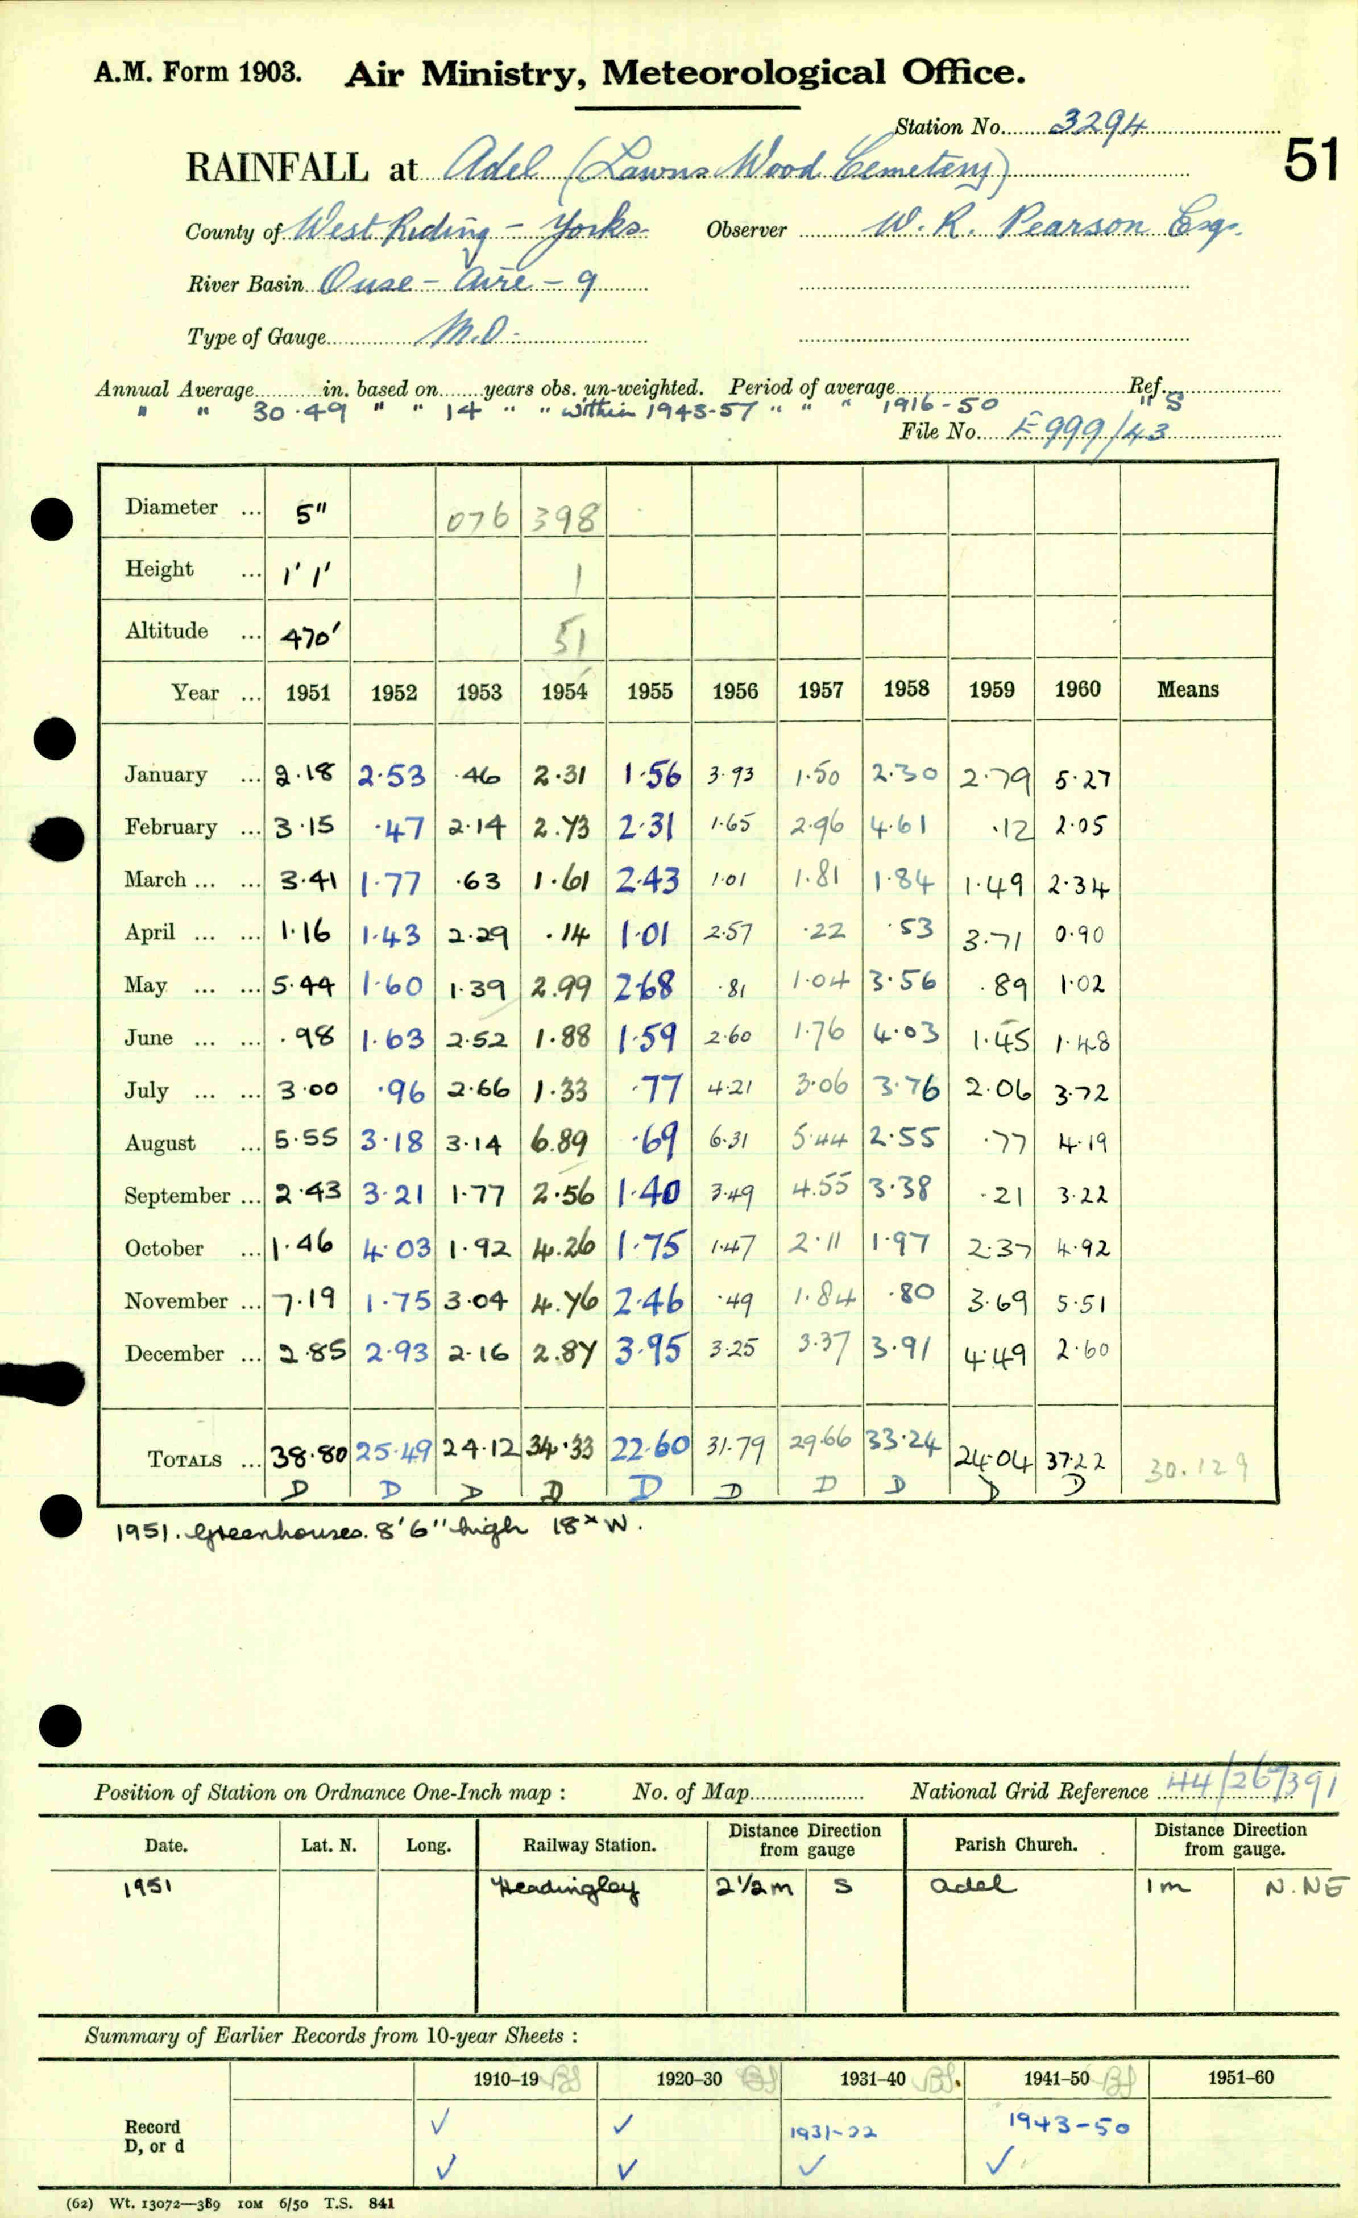 A.M. Form 1903. Air Ministry, Meteorological Office.
Station No. 3294
51
RAINFALL at Adel (Lawns Wood Cemetary)
County of West Riding - Yorks Observer W. R. Pearson Esq.
River Basin Ouse - Aire - 9
Type of Gauge M.O.
Annual Average in. based on years obs. un-weighted. Period of average Ref.
" " 30.49 " " 14 " " within 1943-57 " " " 1916-50 " S
File No. E999/43
Diameter ... 5" 076 398
Height ... 1' 1' 1
Altitude ... 470' 51
Year ... 1951 1952 1953 1954 1955 1956 1957 1958 1959 1960 Means
January ... 2.18 2.53 .46 2.31 1.56 3.93 1.50 2.30 2.79 5.27
February ... 3.15 .47 2.14 2.73 2.31 1.65 2.96 4.61 .12 2.05
March ... ... 3.41 1.77 .63 1.61 2.43 1.01 1.81 1.84 1.49 2.34
April ... ... 1.16 1.43 2.29 .14 1.01 2.57 .22 .53 3.71 0.90
May ... ... 5.44 1.60 1.39 2.99 2.68 .81 1.04 3.56 .89 1.02
June ... ... .98 1.63 2.52 1.88 1.59 2.60 1.76 4.03 1.45 1.48
July ... ... 3.00 .96 2.66 1.33 .77 4.21 3.06 3.76 2.06 3.72
August ... 5.55 3.18 3.14 6.89 .69 6.31 5.44 2.55 .77 4.19
September ... 2.43 3.21 1.77 2.56 1.40 3.49 4.55 3.38 .21 3.22
October ... 1.46 4.03 1.92 4.26 1.75 1.47 2.11 1.97 2.37 4.92
November ... 7.19 1.75 3.04 4.76 2.46 .49 1.84 .80 3.69 5.51
December ... 2.85 2.93 2.16 2.87 3.95 3.25 3.37 3.91 4.49 2.60
TOTALS ... 38.80 25.49 24.12 34.33 22.60 31.79 29.66 33.24 24.04 37.22 30.129
D D D D D D D D D D
1951. Greenhouses. 8'6" high 18x W.
Position of Station on Ordnance One-Inch map : No. of Map National Grid Reference 44/267391
Date. Lat. N. Long. Railway Station. Distance Direction from gauge Parish Church. Distance Direction from gauge.
1951 Headingley 2½m S Adel 1m N.NE
Summary of Earlier Records from 10-year Sheets :
1910–19 1920–30 1931–40 1941–50 1951–60
Record ✓ ✓ 1931-32 1943-50
D, or d ✓ ✓ ✓ ✓
(62) Wt. 13072—3B9 10M 6/50 T.S. 841